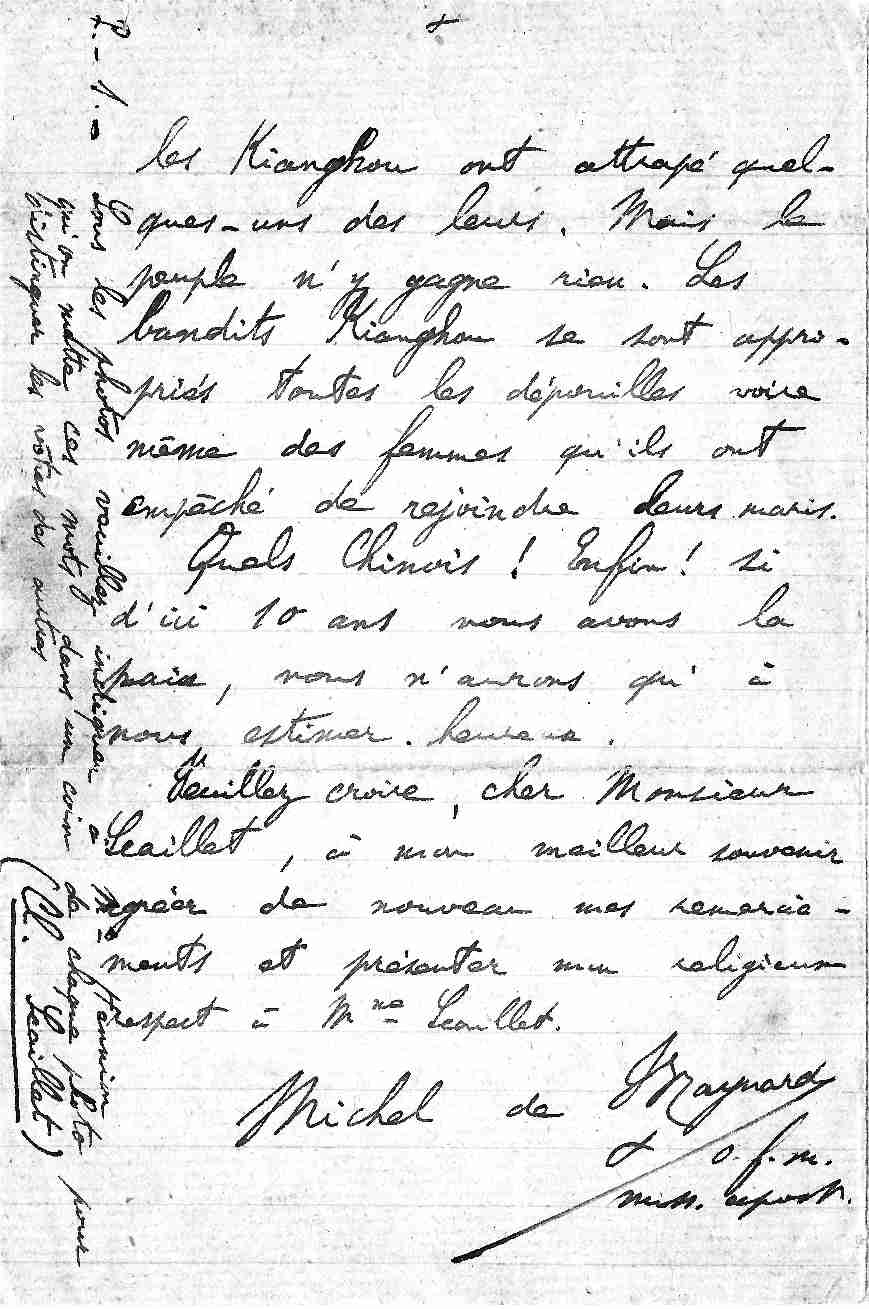 +
les Kianghou ont attrapé quel-
ques-uns des leurs. Mais le
peuple n'y gagne rien. Les
bandits Kianghou se sont appro-
priés toutes les dépouilles voire
même des femmes qu'ils ont
empêché de rejoindre leurs maris.
Quels Chinois ! Enfin ! si
d'ici 10 ans nous avons la
paix, nous n'aurons qu'à
nous estimer heureux.
Veuillez croire, cher Monsieur
Scaillet, à mon meilleur souvenir
agréer de nouveau mes remercie-
ments et présenter mon religieux
respect à Mme Scaillet.
Michel de Maynard
+ o.f.m.
miss. apost.
P.-S.- Tous les photos veuillez indiquer à Mme
qu'on mette ces mots dans un coin de chaque photo pour
distinguer les vôtres des autres
(Cl. Scaillet)